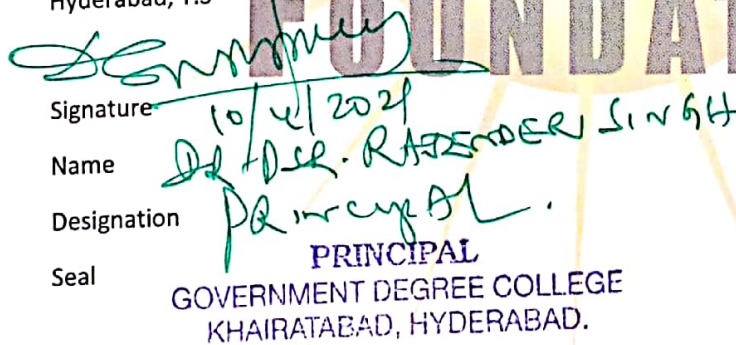 Hyderabad, TS
FOUNDAT
Signature
10/4/2021
Name Dr. DSR. RAJENDER SINGH
Designation PRINCIPAL.
Seal
PRINCIPAL
GOVERNMENT DEGREE COLLEGE
KHAIRATABAD, HYDERABAD.